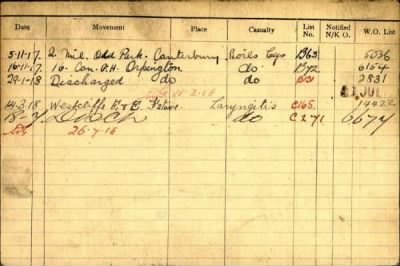 Date Movement Place Casualty List No. Notified N/K O. W.O. List
5-11-17. 2 Mil. Odd Park. Canterbury Boils Legs B63 5036
16-11-17. 16. Can. G.H. Orpington do B72 6154
29-1-18 Discharged do do 2831
15-2-18 21 JUL
14-3-18 Westcliffe E & E F'stone Laryngitis C165 14422
18-7 Disch do C271 6677
26-7-18